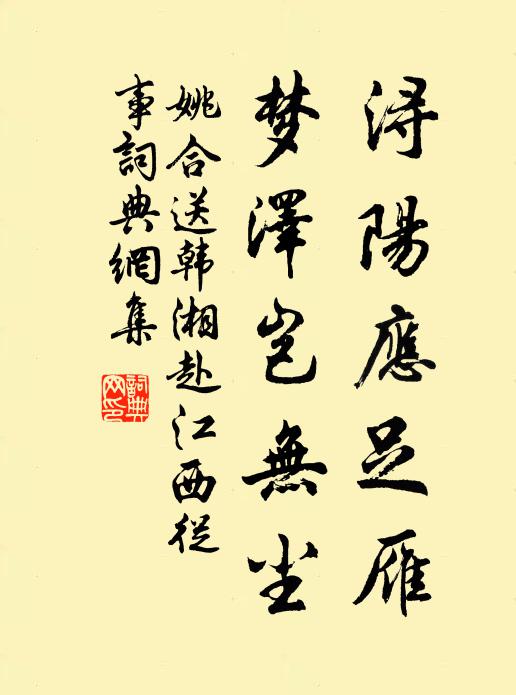 浔陽應足雁
梦澤岂無尘
姚合送韩湘赴江西從
事詞典網集
詞典
网印